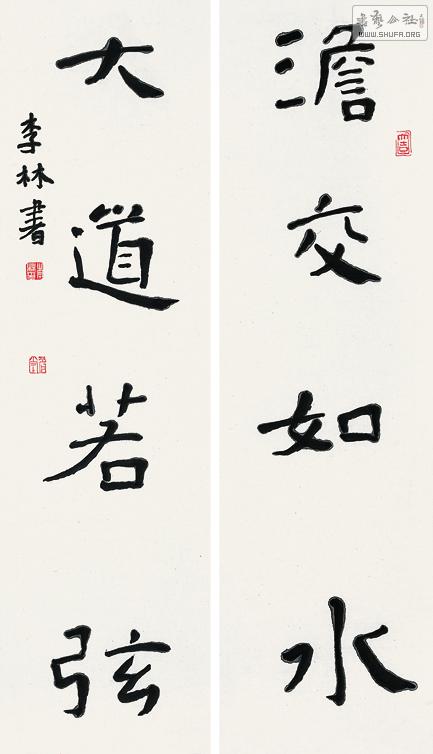 澹交如水
大道若弦
李林書
書藝公社
WWW.SHUFA.ORG